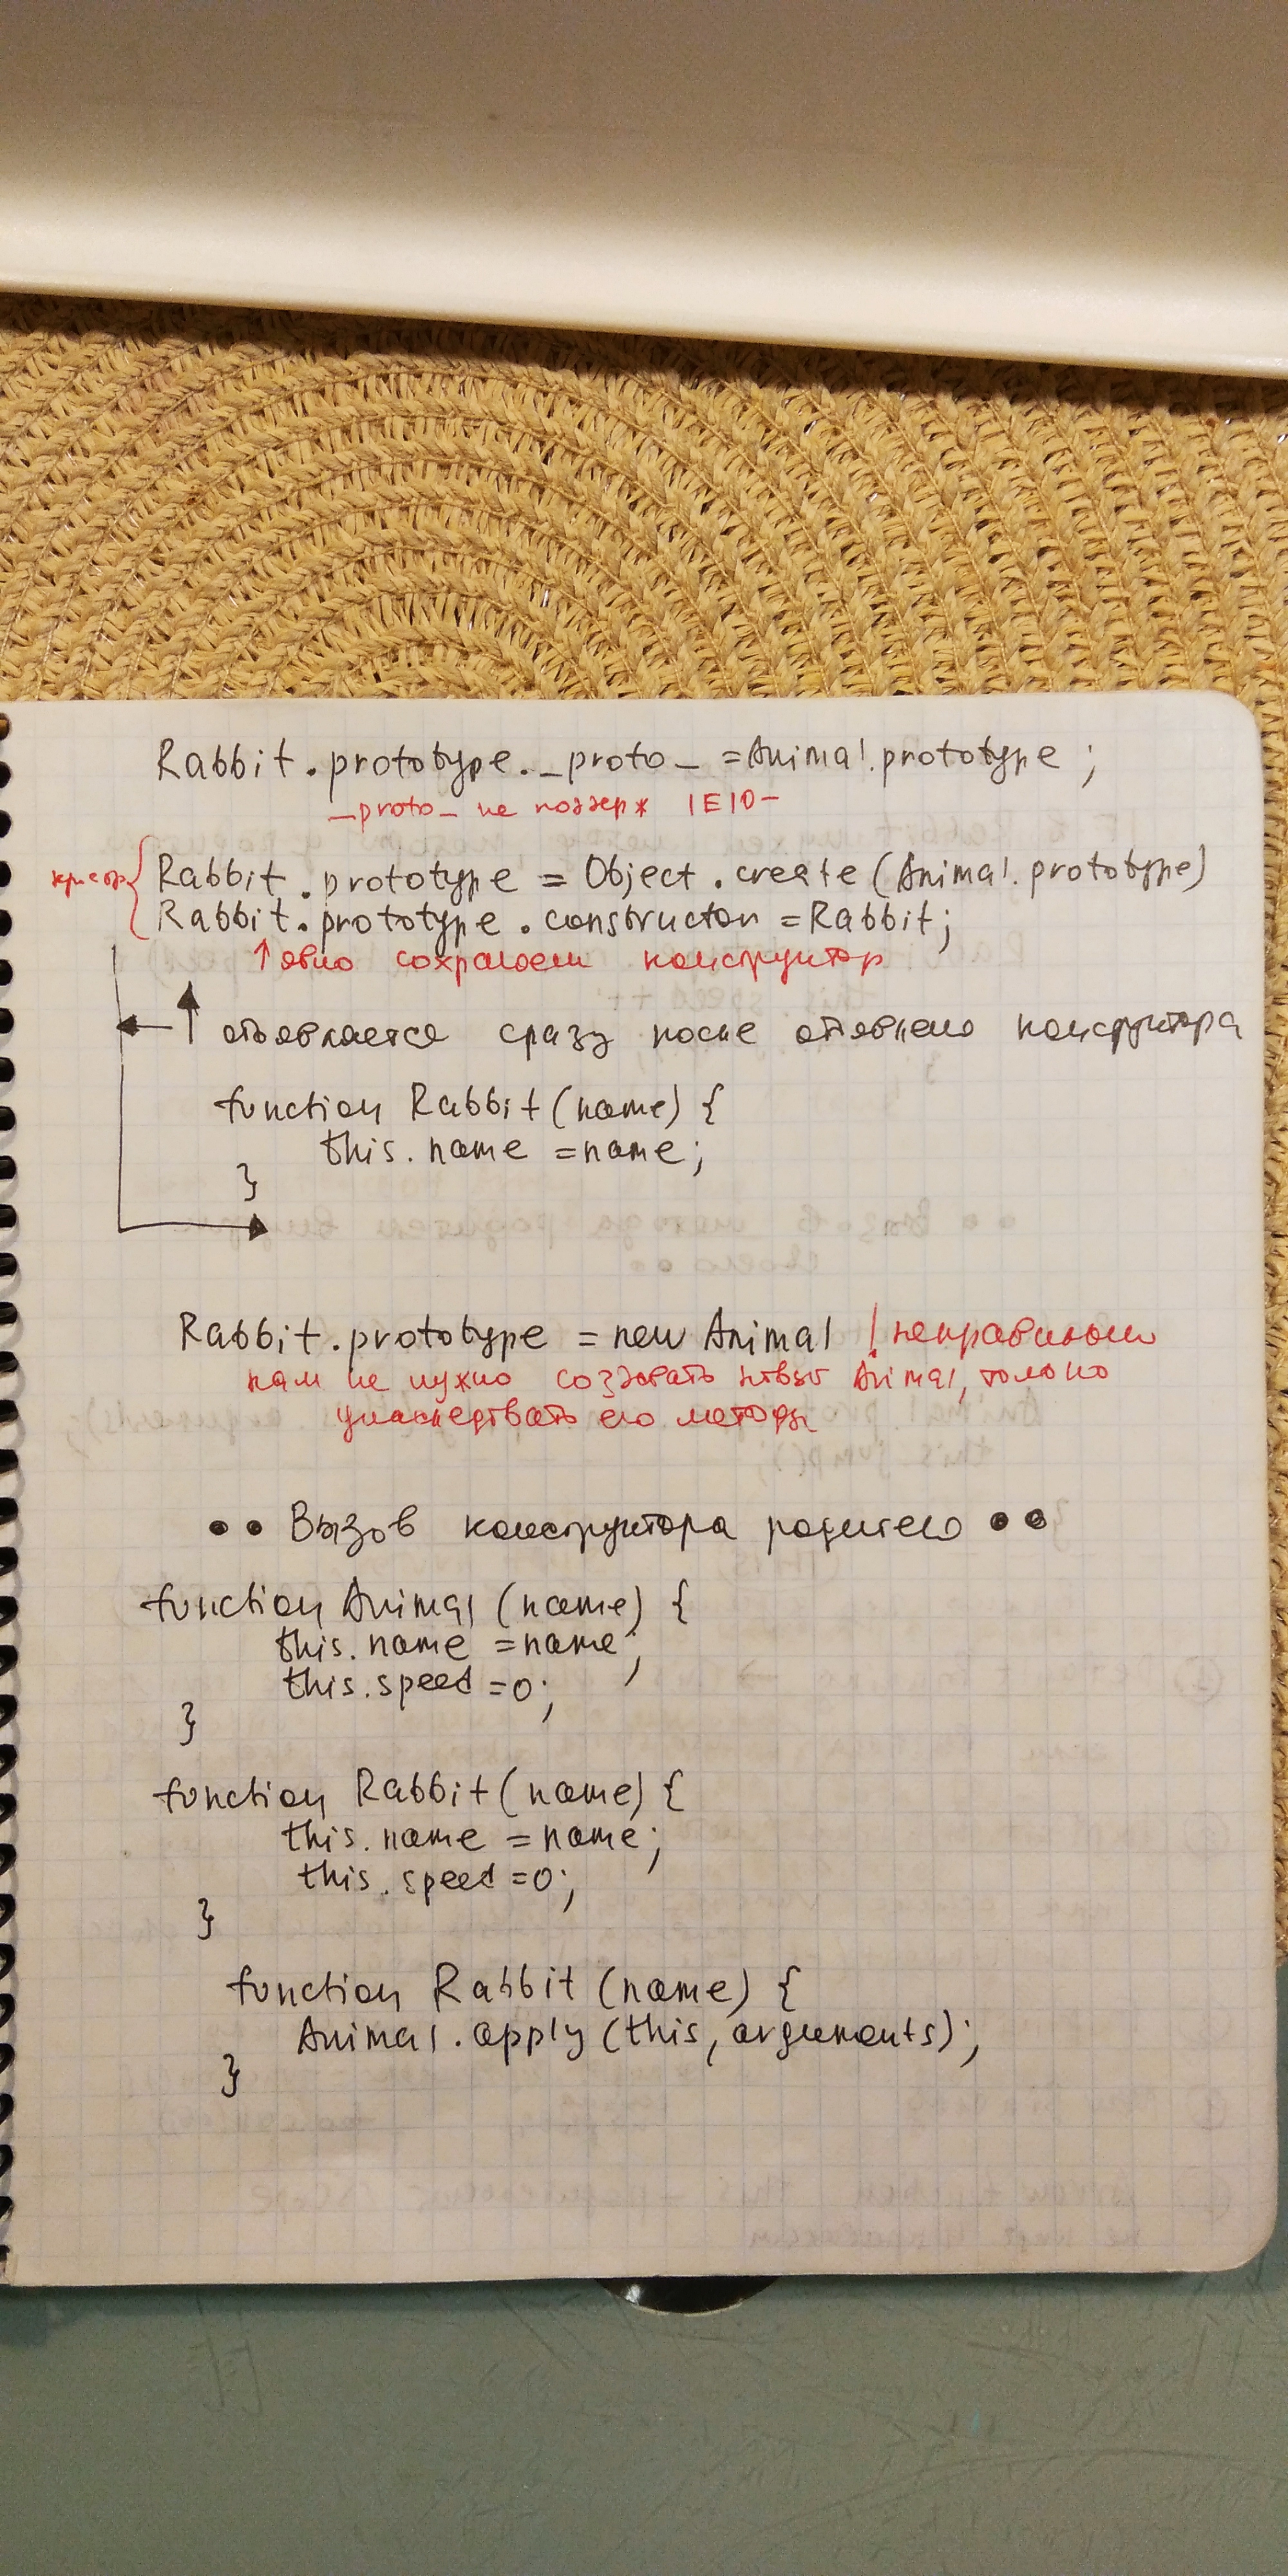 Rabbit.prototype._proto_ = Animal.prototype;
_proto_ не поддерж IE10-
Rabbit.prototype = Object.create(Animal.prototype)
Rabbit.prototype.constructor = Rabbit;
↑ явно сохраняем конструктор
объявляется сразу после объявлено конструктора
function Rabbit(name) {
this.name = name;
}
Rabbit.prototype = new Animal ! неправильно
нам не нужно создавать новый Animal, только
унаследовать его методы
•• Вызов конструктора родителя ••
function Animal (name) {
this.name = name;
this.speed = 0;
}
function Rabbit (name) {
this.name = name;
this.speed = 0;
}
function Rabbit (name) {
Animal.apply(this, arguments);
}